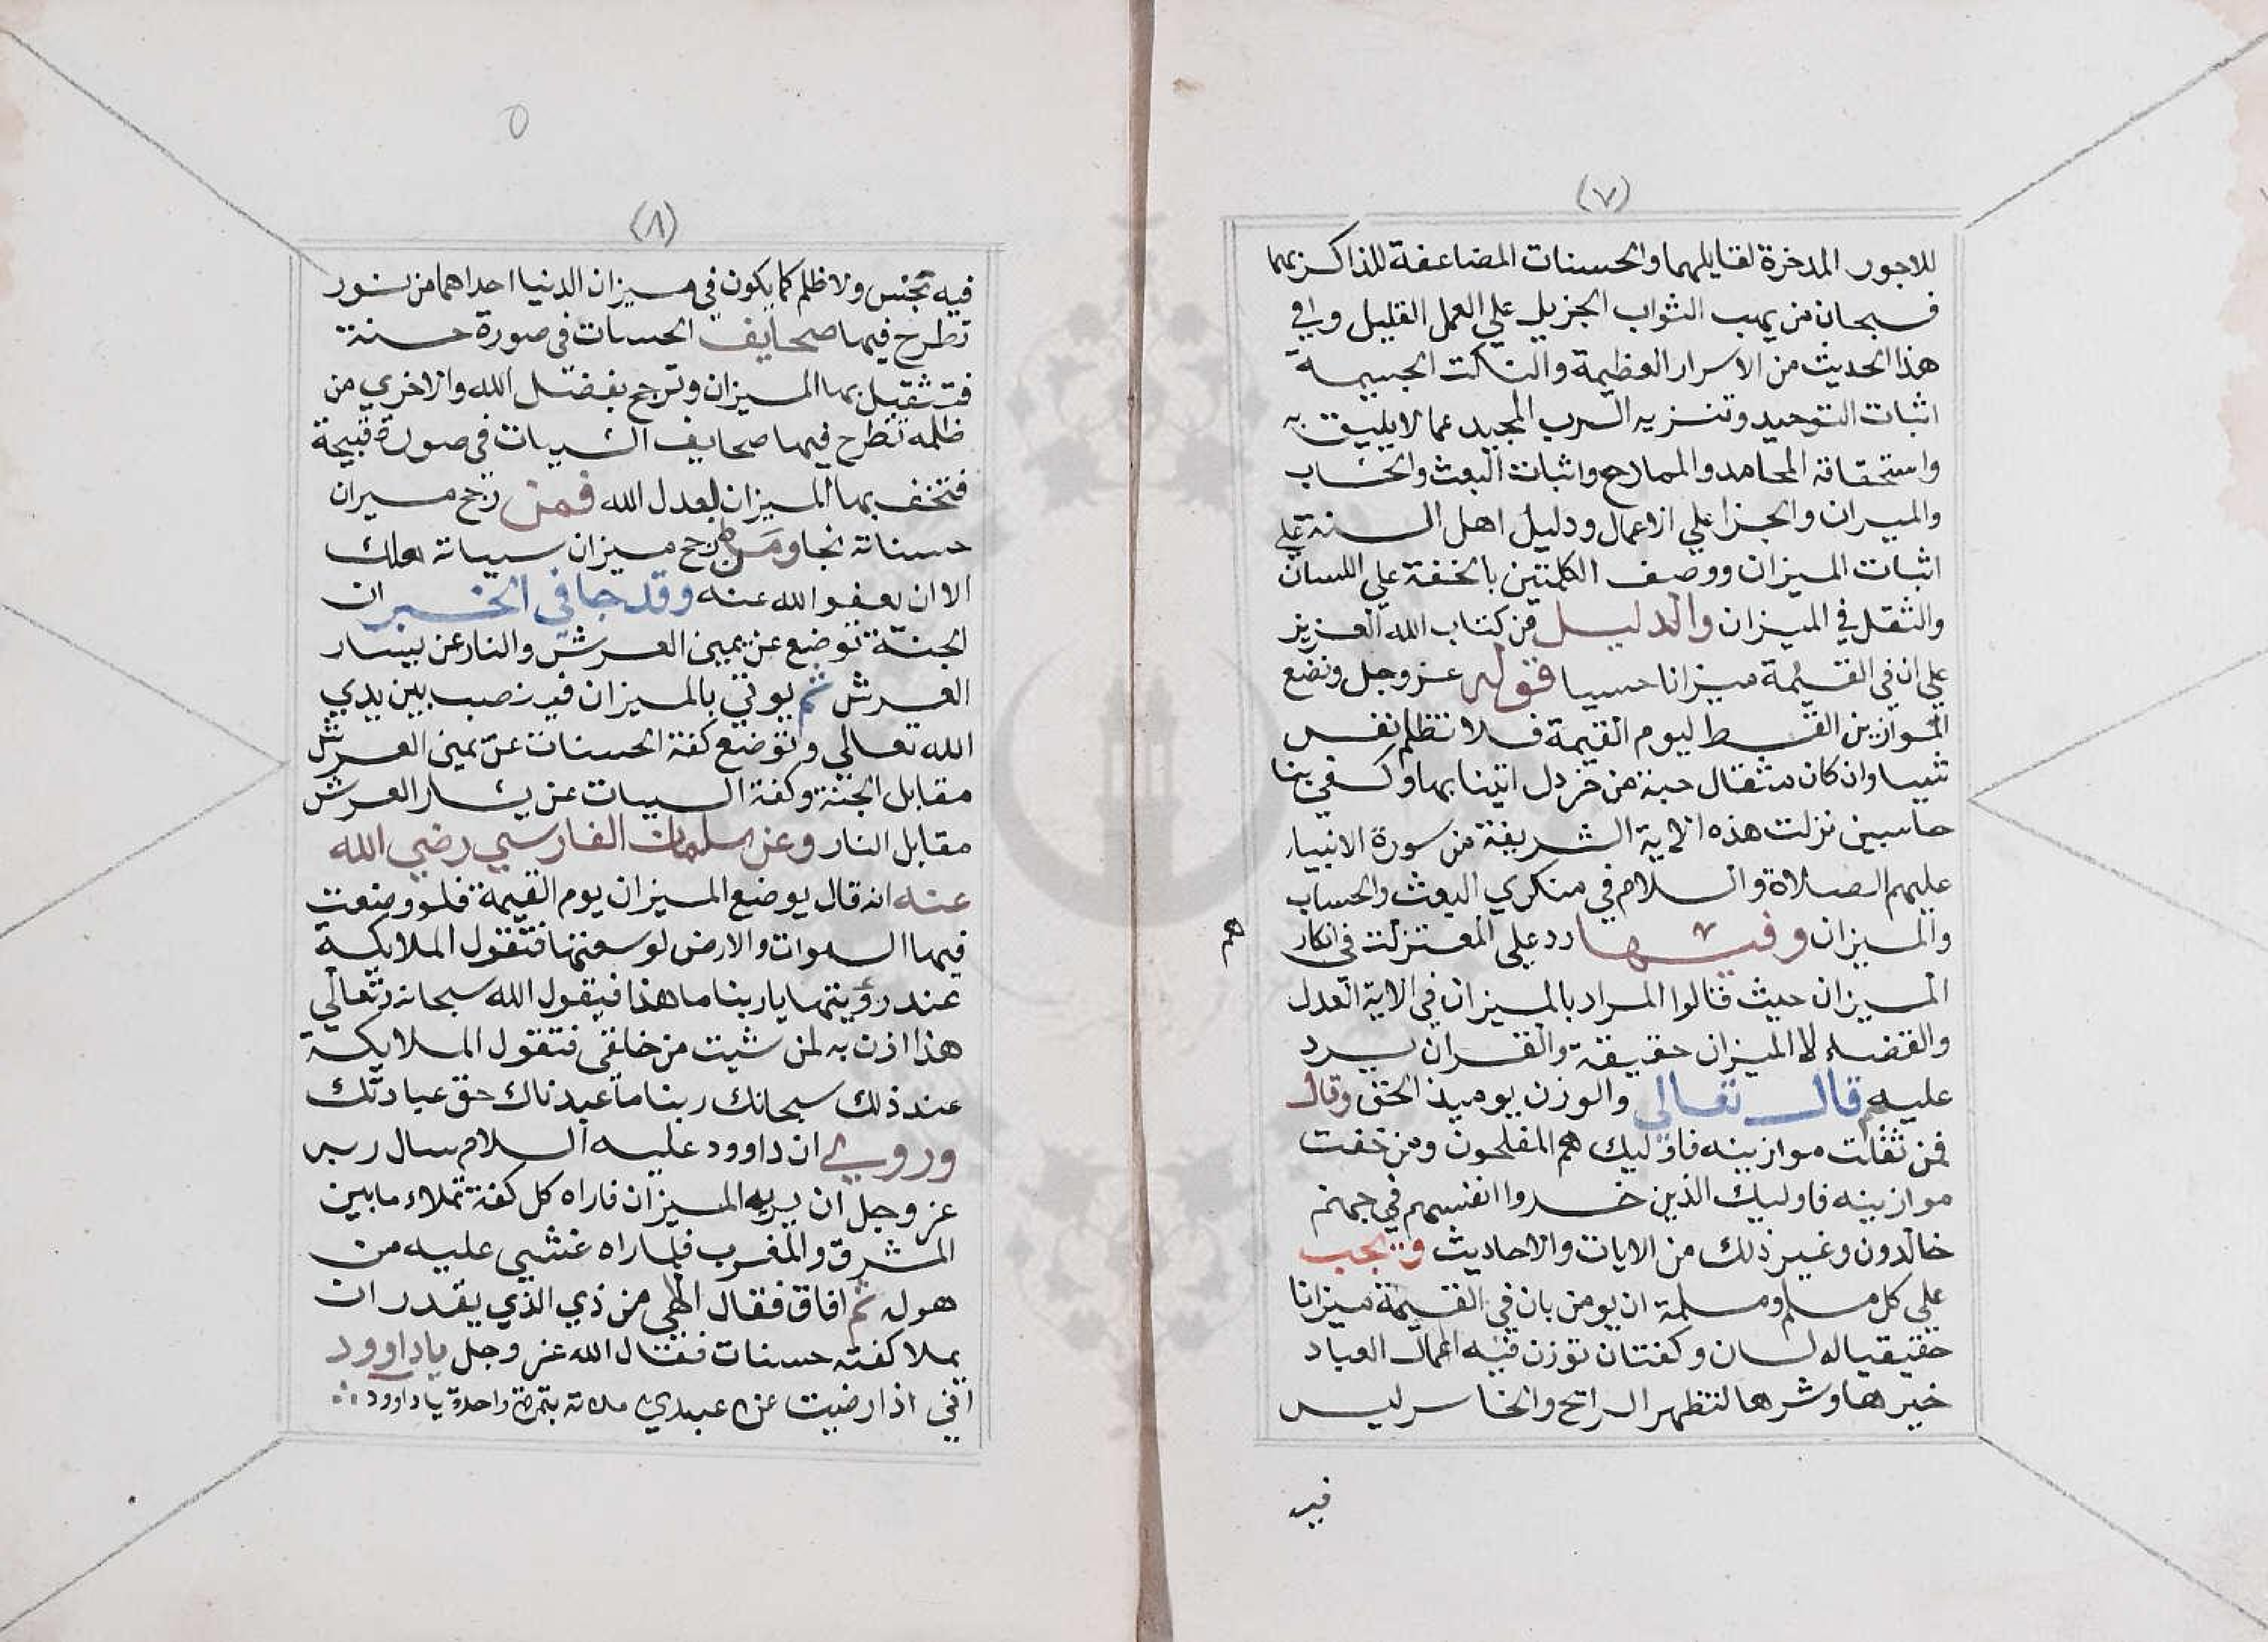 (٧)
للاجور المدخرة لقايلهما والحسنات المضاعفة للذاكر بهما
فسبحان من يهب الثواب الجزيل علي العمل القليل وافي
هذا الحديث من الاسرار العظيمة والنكت الجسيمة
اثبات التوحيد وتنزيه الرب المجيد عما لا يليق به
واستحقاقه المحامد والممادح واثبات البعث والحساب
والميزان والجزا علي الاعمال ودليل اهل السنة علي
اثبات الميزان ووصف الكلمتين بالخفة علي اللسان
والثقل في الميزان والدليل من كتاب الله العزيز
علي ان في القيمة ميزانا حسيا قوله عز وجل ونضع
الموازين القسط ليوم القيمة فلا تظلم نفس
شيا وان كان مثقال حبة من خردل اتينا بها وكفي بنا
حاسبين نزلت هذه الاية الشريفة من سورة الانبيا
عليهم الصلاة والسلام في منكري البعث والحساب
والميزان وفيها رد علي المعتزلة في انكار
هم
الميزان حيث قالوا المراد بالميزان في الاية العدل
والقضاء لا الميزان حقيقة والقران يرد
عليهم قال تعالى والوزن يوميذ الحق وقال
فمن ثقلت موازينه فاوليك هم المفلحون ومن خفت
موازينه فاوليك الذين خسروا انفسهم في جهنم
خالدون وغير ذلك من الايات والاحاديث ويجب
علي كل مسلم ومسلمة ان يومن بان في القيمة ميزانا
حقيقيا له لسان وكفتان توزن فيه اعمال العباد
خيرها وشرها لتظهر الرابح والخاسر ليس
فيه
٥
(٨)
فيه بخس ولا ظلم كما يكون في ميزان الدنيا احداهما من نور
تطرح فيها صحايف الحسنات في صورة حسنة
فتثقيل بها الميزان وترجح بفضل الله والاخري من
ظلمه تطرح فيها صحايف السييات في صورة قبيحة
فتخف بها الميزان بعدل الله فمن رجح ميزان
حسناته نجا ومن رجح ميزان سياته هلك
الا ان يعفو الله عنه وقد جا في الخبر ان
الجنة توضع عن يمين العرش والنار عن يسار
العرش ثم يوتي بالميزان فينصب بين يدي
الله تعالي وتوضع كفة الحسنات عن يمين العرش
مقابل الجنة وكفة السيات عن يسار العرش
مقابل النار وعن سلمان الفارسي رضي الله
عنه انه قال يوضع الميزان يوم القيمة فلو وضعت
فيها السموات والارض لوسعتها فتقول الملايكة
عند رؤيتها ياربنا ما هذا فيقول الله سبحانه وتعالي
هذا ازن به لمن شيت من خلقي فتقول الملايكة
عند ذلك سبحانك ربنا ما عبدناك حق عبادتك
وروي ان داوود عليه السلام سال ربه
عز وجل ان يريه الميزان فاراه كل كفة تملاء ما بين
المشرق والمغرب فلما راه غشي عليه من
هوله ثم افاق فقال الهي من ذي الذي يقدر ان
يملا كفته حسنات فقال الله عز وجل ياداوود
اني اذا رضيت عن عبدي ملاته بتمرة واحدة ياداوود